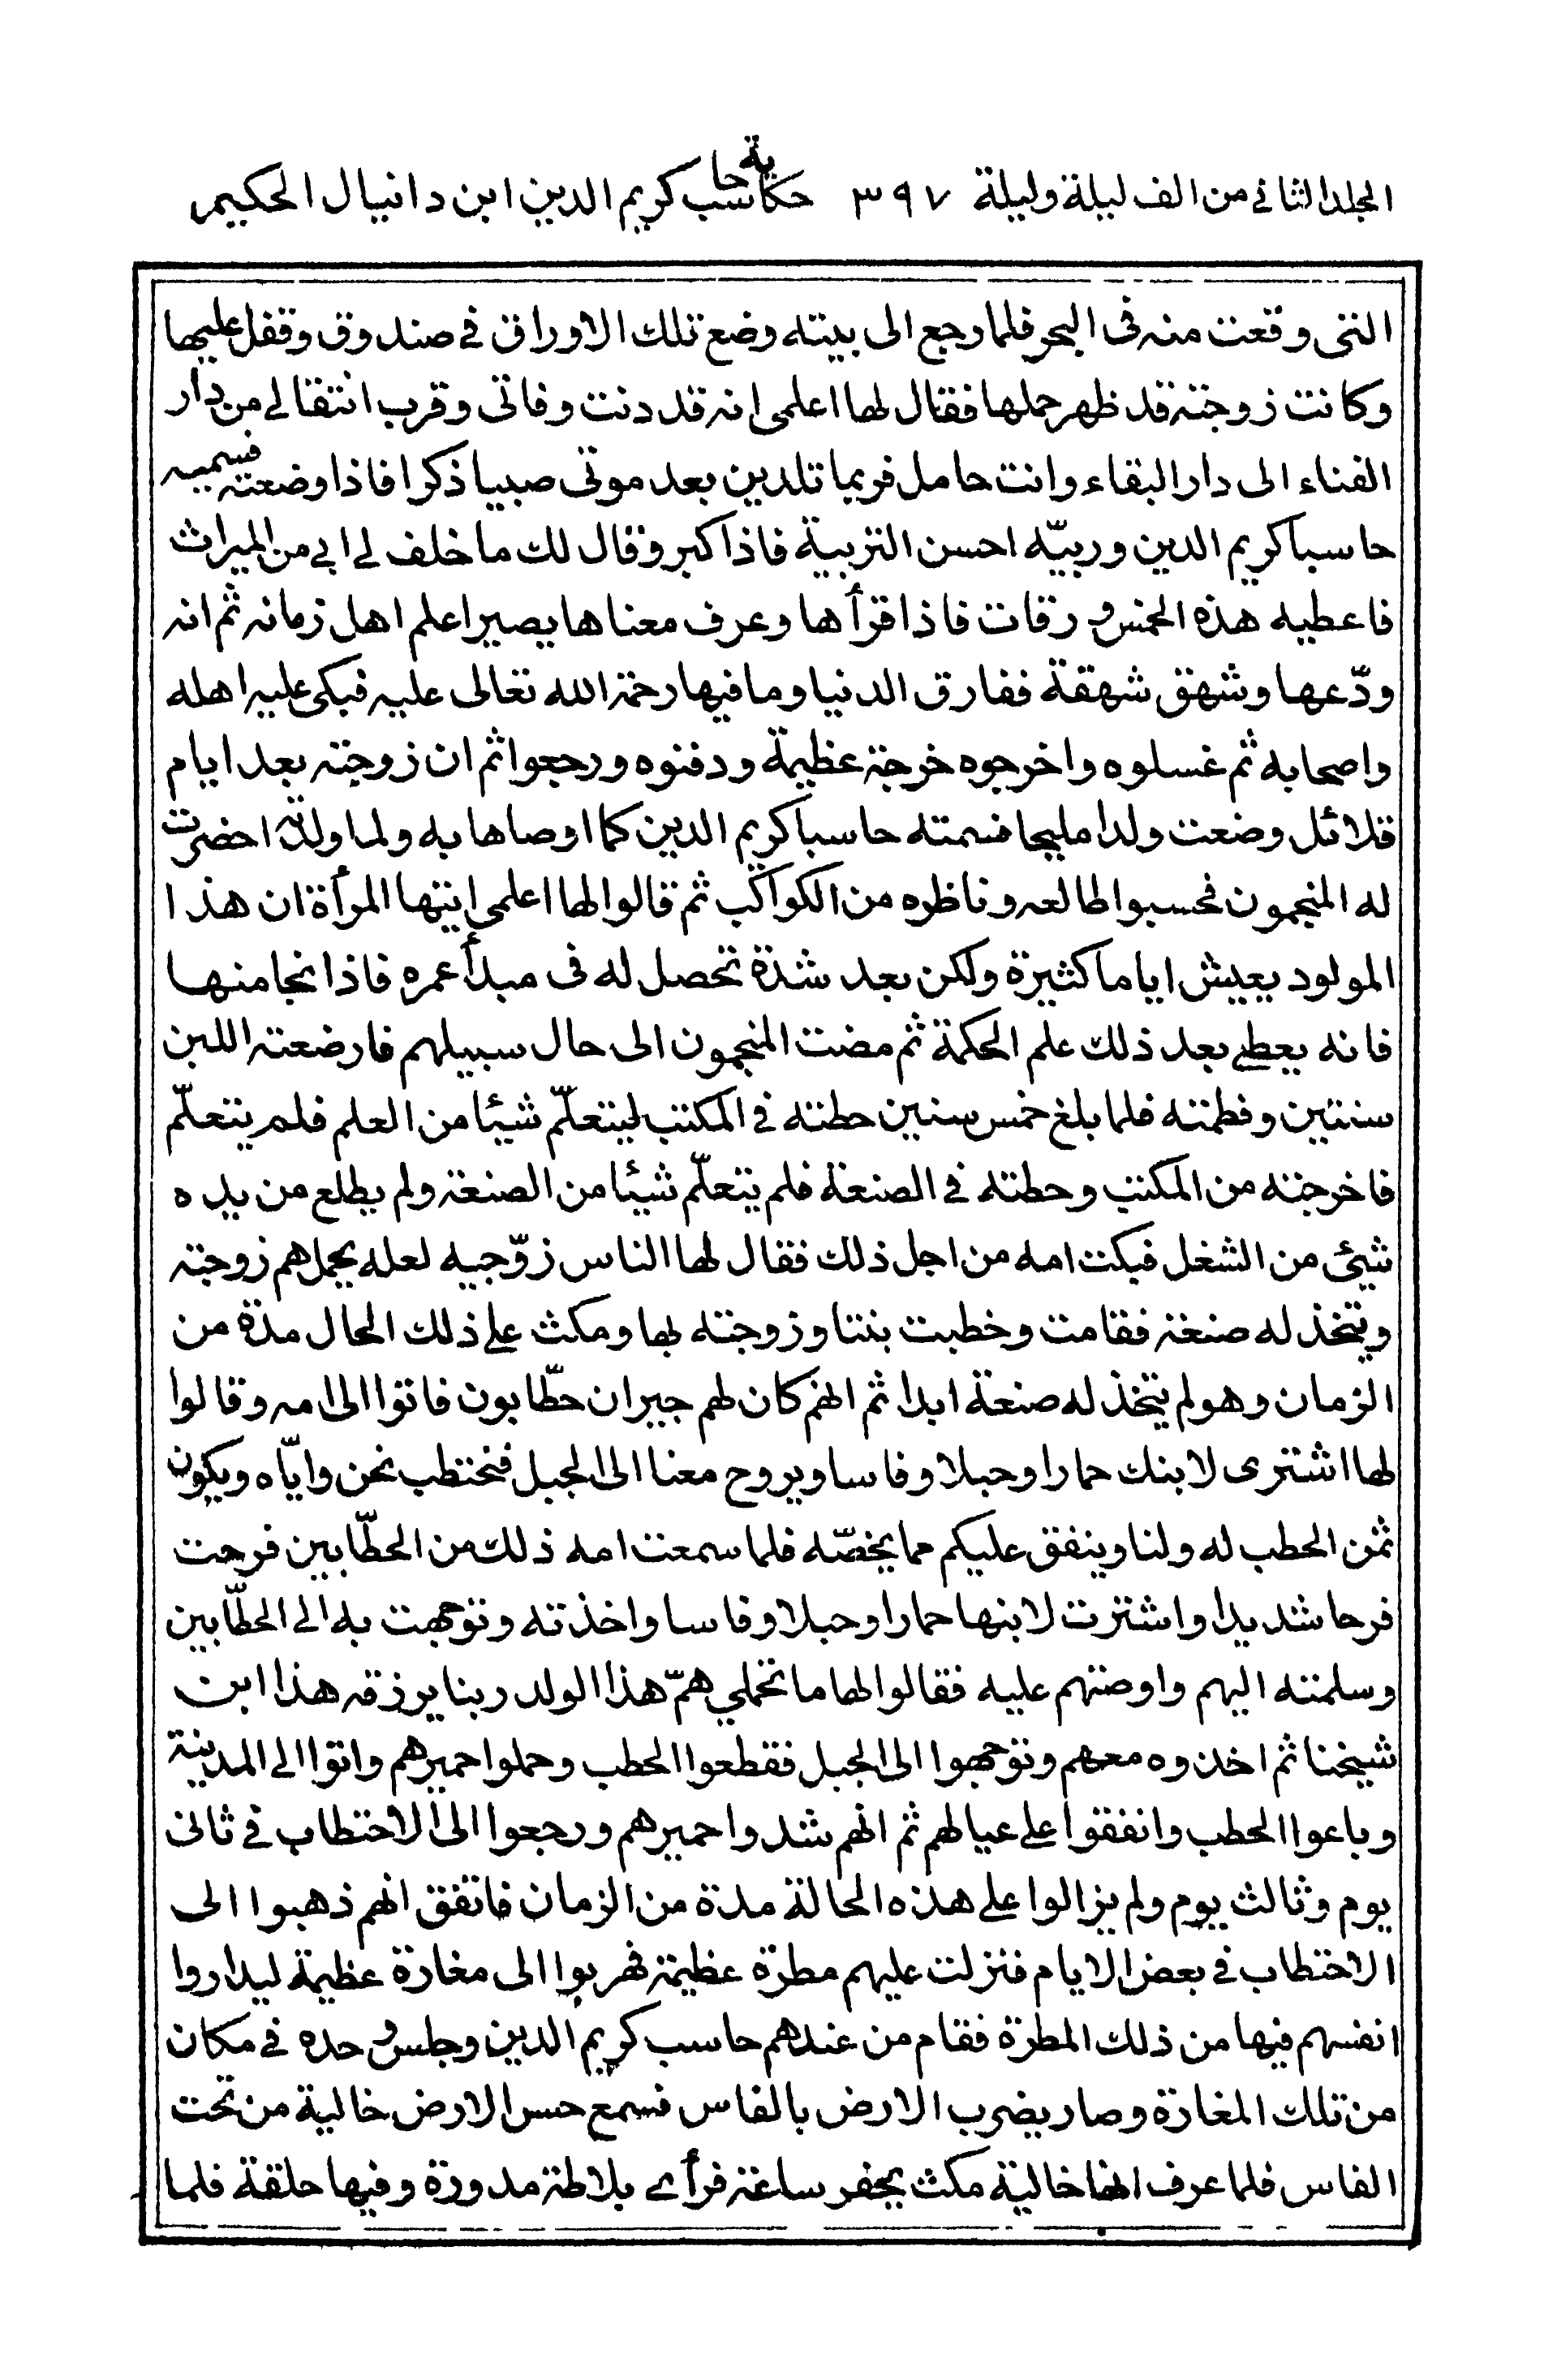 المجلد الثاني من الف ليلة وليلة ٣٩٧ حكاية حاسب كريم الدين ابن دانيال الحكيم
التى وقعت منه فى البحر فلما رجع الى بيته وضع تلك الاوراق في صندوق وقفل عليها
وكانت زوجته قد ظهر حملها فقال لها اعلمى انه قد دنت وفاتى وقرب انتقالي من دار
الفناء الى دار البقاء وانت حامل فربما تلدين بعد موتى صبيا ذكرا فاذا وضعته فسميه
حاسبا كريم الدين وربيّه احسن التربية فاذا كبر وقال لك ما خلف لي ابي من الميراث
فاعطيه هذه الخمس ورقات فاذا قرأها وعرف معناها يصير اعلم اهل زمانه ثم انه
ودّعها وشهق شهقة ففارق الدنيا وما فيها رحمة الله تعالى عليه فبكى عليه اهله
واصحابه ثم غسلوه واخرجوه خرجة عظيمة ودفنوه ورجعوا ثم ان زوجته بعد ايام
قلائل وضعت ولدا مليحا فسمته حاسبا كريم الدين كما اوصاها به ولما ولدته احضرت
له المنجمون فحسبوا طالعه وناظره من الكواكب ثم قالوا لها اعلمى ايتها المرأة ان هذا
المولود يعيش اياما كثيرة ولكن بعد شدة تحصل له فى مبدأ عمره فاذا نجا منها
فانه يعطي بعد ذلك علم الحكمة ثم مضت المنجمون الى حال سبيلهم فارضعته اللبن
سنتين وفطمته فلما بلغ خمس سنين حطته في المكتب ليتعلّم شيئا من العلم فلم يتعلّم
فاخرجته من المكتب وحطته في الصنعة فلم يتعلّم شيئا من الصنعة ولم يطلع من يده
شيئ من الشغل فبكت امه من اجل ذلك فقال لها الناس زوّجيه لعله يحمل هم زوجته
ويتخذ له صنعة فقامت وخطبت بنتا وزوجته بها ومكث علي ذلك الحال مدة من
الزمان وهو لم يتخذ له صنعة ابدا ثم انهم كان لهم جيران حطّابون فاتوا الى امه وقالوا
لها اشترى لابنك حمارا وحبلا وفاسا ويروح معنا الى الجبل فنحتطب نحن وايّاه ويكون
ثمن الحطب له ولنا وينفق عليكم مما يخصّه فلما سمعت امه ذلك من الحطّابين فرحت
فرحا شديدا واشترت لابنها حمارا وحبلا وفاسا واخذته وتوجهت به الي الحطّابين
وسلمته اليهم واوصتهم عليه فقالوا لها ما تحملي همّ هذا الولد ربنا يرزقه هذا ابن
شيخنا ثم اخذوه معهم وتوجهوا الى الجبل فقطعوا الحطب وحملوا حميرهم واتوا الي المدينة
وباعوا الحطب وانفقوا علي عيالهم ثم انهم شدوا حميرهم ورجعوا الى الاحتطاب في ثانى
يوم وثالث يوم ولم يزالوا علي هذه الحالة مدة من الزمان فاتفق انهم ذهبوا الى
الاحتطاب في بعض الايام فنزلت عليهم مطرة عظيمة فهربوا الى مغارة عظيمة ليداروا
انفسهم فيها من ذلك المطرة فقام من عندهم حاسب كريم الدين وجلس وحده في مكان
من تلك المغارة وصار يضرب الارض بالفاس فسمع حس الارض خالية من تحت
الفاس فلما عرف انها خالية مكث يحفر ساعة فرأي بلاطة مدورة وفيها حلقة فلما